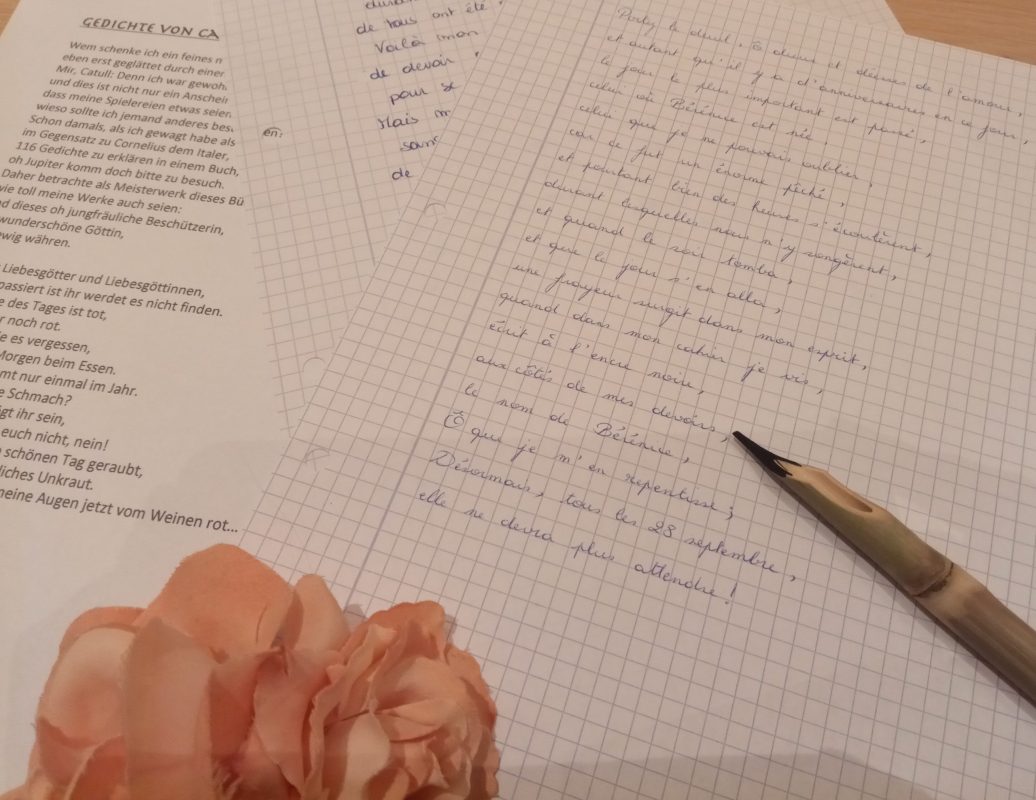 GEDICHTE VON CA
Wem schenke ich ein feines n
eben erst geglättet durch einer
Mir, Catull: Denn ich war gewoh
und dies ist nicht nur ein Anschein
dass meine Spielereien etwas seien
wieso sollte ich jemand anderes bes
Schon damals, als ich gewagt habe als
im Gegensatz zu Cornelius dem Italer,
116 Gedichte zu erklären in einem Buch,
oh Jupiter komm doch bitte zu besuch.
Daher betrachte als Meisterwerk dieses Bü
wie toll meine Werke auch seien:
nd dieses oh jungfräuliche Beschützerin,
wunderschöne Göttin,
ewig währen.
Liebesgötter und Liebesgöttinnen,
passiert ist ihr werdet es nicht finden.
e des Tages ist tot,
r noch rot.
ie es vergessen,
Morgen beim Essen.
mt nur einmal im Jahr.
e Schmach?
igt ihr sein,
euch nicht, nein!
schönen Tag geraubt,
liches Unkraut.
meine Augen jetzt vom Weinen rot...
en;
de tous ont été
Voilà mon
de devoir
pour
Mais m
sans
de
Portez le deuil, ô dieux et déesses de l'amour,
et autant qu'il y a d'anniversaires en ce jour,
le jour le plus important est passé,
celui où Bérénice est née,
celui que je ne pouvais oublier,
car ce fut un énorme péché,
et pourtant bien des heures s'écoulèrent,
durant lesquelles nous n'y songèrent,
et quand le soir tomba,
et que le jour s'en alla,
une frayeur surgit dans mon esprit,
quand dans mon cahier je vis,
écrit à l'encre noire,
aux côtés de mes devoirs,
le nom de Bérénice,
Ô que je m'en repentisse;
Désormais, tous les 23 septembre,
elle ne devra plus attendre!